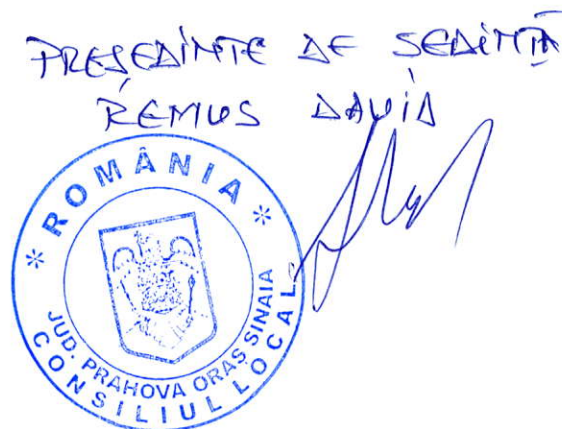 PREȘEDINTE DE SEDINȚĂ
REMUS DAVID
* ROMÂNIA *
JUD. PRAHOVA ORAȘ SINAIA
CONSILIUL LOCAL